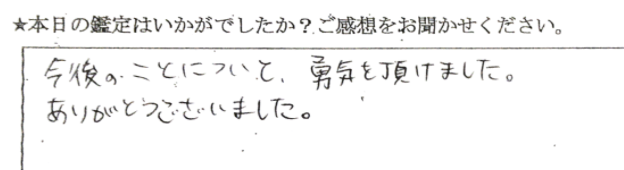 ★本日の鑑定はいかがでしたか？ご感想をお聞かせください。
今後のことについて、勇気を頂けました。
ありがとうございました。